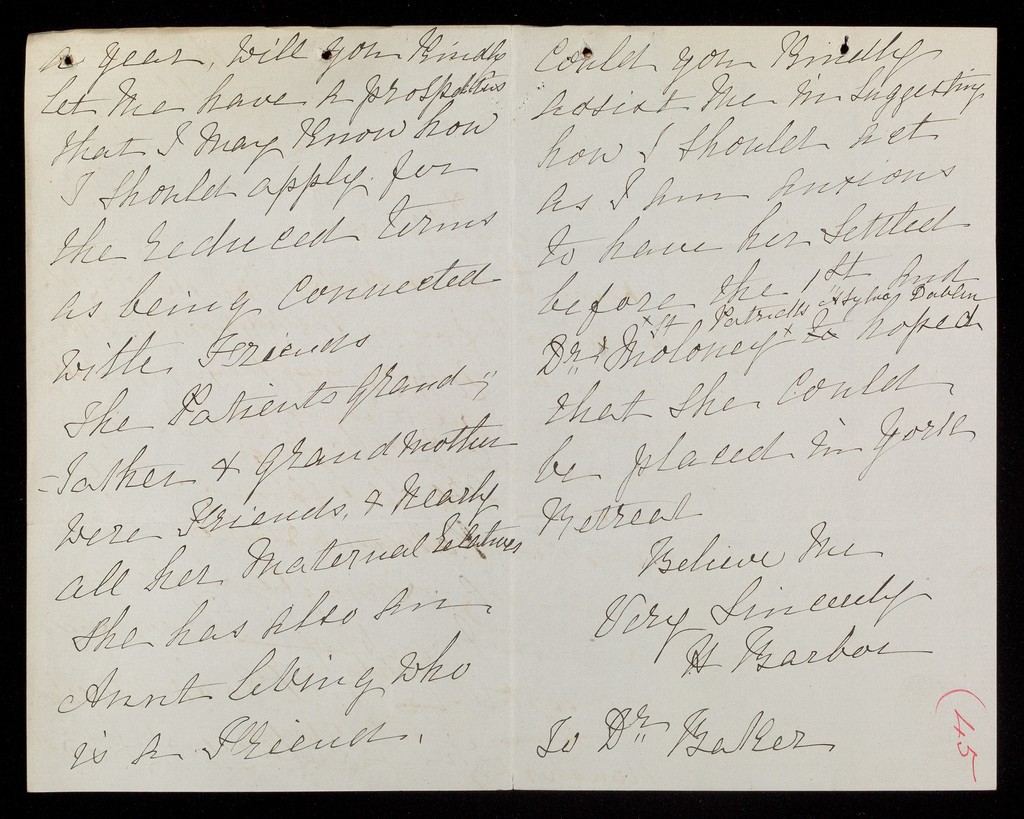 a year, Will you Kindly
let me have a prospectus
that I may Know how
I should apply for
the reduced terms
as being Connected
with Friends
The Patients Grand "
-father & Grandmother
Were Friends, & Nearly
all her Maternal Relatives
She has also an
Aunt living Who
is a Friend.
Could you Kindly
assist me in Suggesting
how I should act
as I am anxious
to have her Settled
before the 1st and
St Patricks Asylum Dublin
Dr Moloney hoped
that she Could
be placed in York
Retreat
Believe Me
Very Sincerely
H Barbor
To Dr Baker
(45